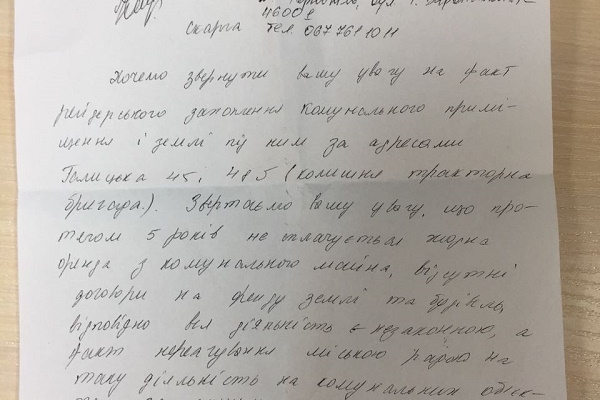 Тернопіль, вул.
46001
Скарга тел. 067 761 10 11
Хочемо звернути вашу увагу на факт
рейдерського захоплення комунального примі-
щення і землі під ним за адресами
Галицька 45, 485 (колишня тракторна
бригада). Звертаємо вашу увагу, що про-
тягом 5 років не сплачується жодна
оренда з комунального майна, відсутні
договори на оренду землі та будівель,
відповідно вся діяльність є незаконною, а
факт нереагування міською радою на
таку діяльність на комунальних об'єк-